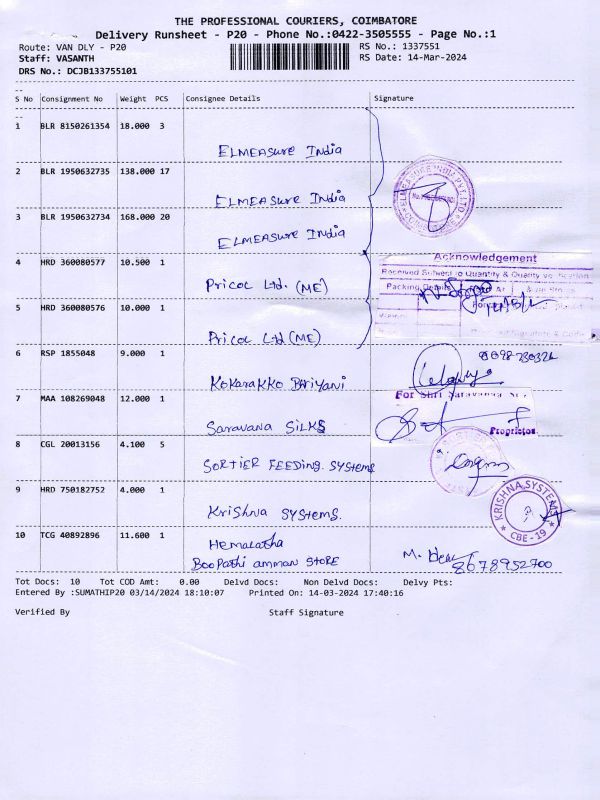 THE PROFESSIONAL COURIERS, COIMBATORE
Delivery Runsheet - P20 - Phone No.:0422-3505555 - Page No.:1
Route: VAN DLY - P20 RS No.: 1337551
Staff: VASANTH RS Date: 14-Mar-2024
DRS No.: DCJB133755101
S No Consignment No Weight PCS Consignee Details Signature
1 BLR 8150261354 18.000 3
ELMEASURE India
2 BLR 1950632735 138.000 17
ELMEASURE India
3 BLR 1950632734 168.000 20
ELMEASURE India
4 HRD 360080577 10.500 1 Acknowledgement
Pricol Ltd. (ME) Received Subject to Quantity & Quality
Packing Details
5 HRD 360080576 10.000 1
Pricol Ltd (ME)
6 RSP 1855048 9.000 1
Kokarakko Biriyani
7 MAA 108269048 12.000 1 For Shri Saravanaa
Saravana SILKS Proprietor
8 CGL 20013156 4.100 5
SORTIER FEEDING SYSTEMS
9 HRD 750182752 4.000 1
Krishna SYSTEMS. KRISHNA SYSTEMS CBE - 19
10 TCG 40892896 11.600 1
Hemalatha
Boopathi amman STORE 8678952700
Tot Docs: 10 Tot COD Amt: 0.00 Delvd Docs: Non Delvd Docs: Delvy Pts:
Entered By :SUMATHIP20 03/14/2024 18:10:07 Printed On: 14-03-2024 17:40:16
Verified By Staff Signature